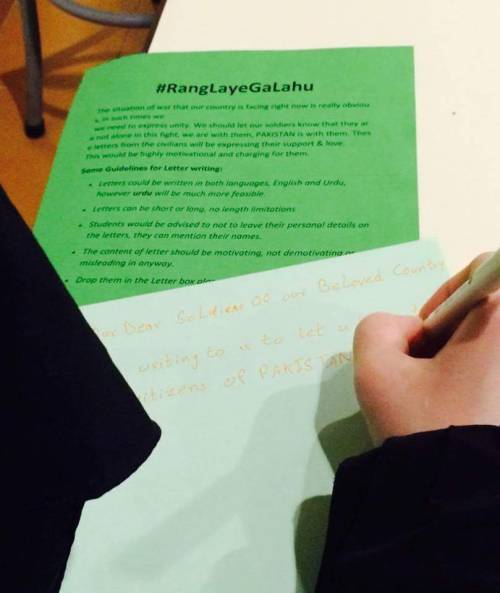 #RangLayeGaLahu
The situation of war that our country is facing right now is really obviou
s, in such times we
we need to express unity. We should let our soldiers know that they ar
e not alone in this fight, we are with them, PAKISTAN is with them. Thes
e letters from the civilians will be expressing their support & love.
This would be highly motivational and charging for them.
Some Guidelines for Letter writing:
• Letters could be written in both languages, English and Urdu,
however urdu will be much more feasible.
• Letters can be short or long, no length limitations
• Students would be advised to not to leave their personal details on
the letters, they can mention their names.
• The content of letter should be motivating, not demotivating or
misleading in anyway.
• Drop them in the Letter box
Dear Soldiers Of our Beloved Country
writing to u to let u
citizens of PAKISTAN